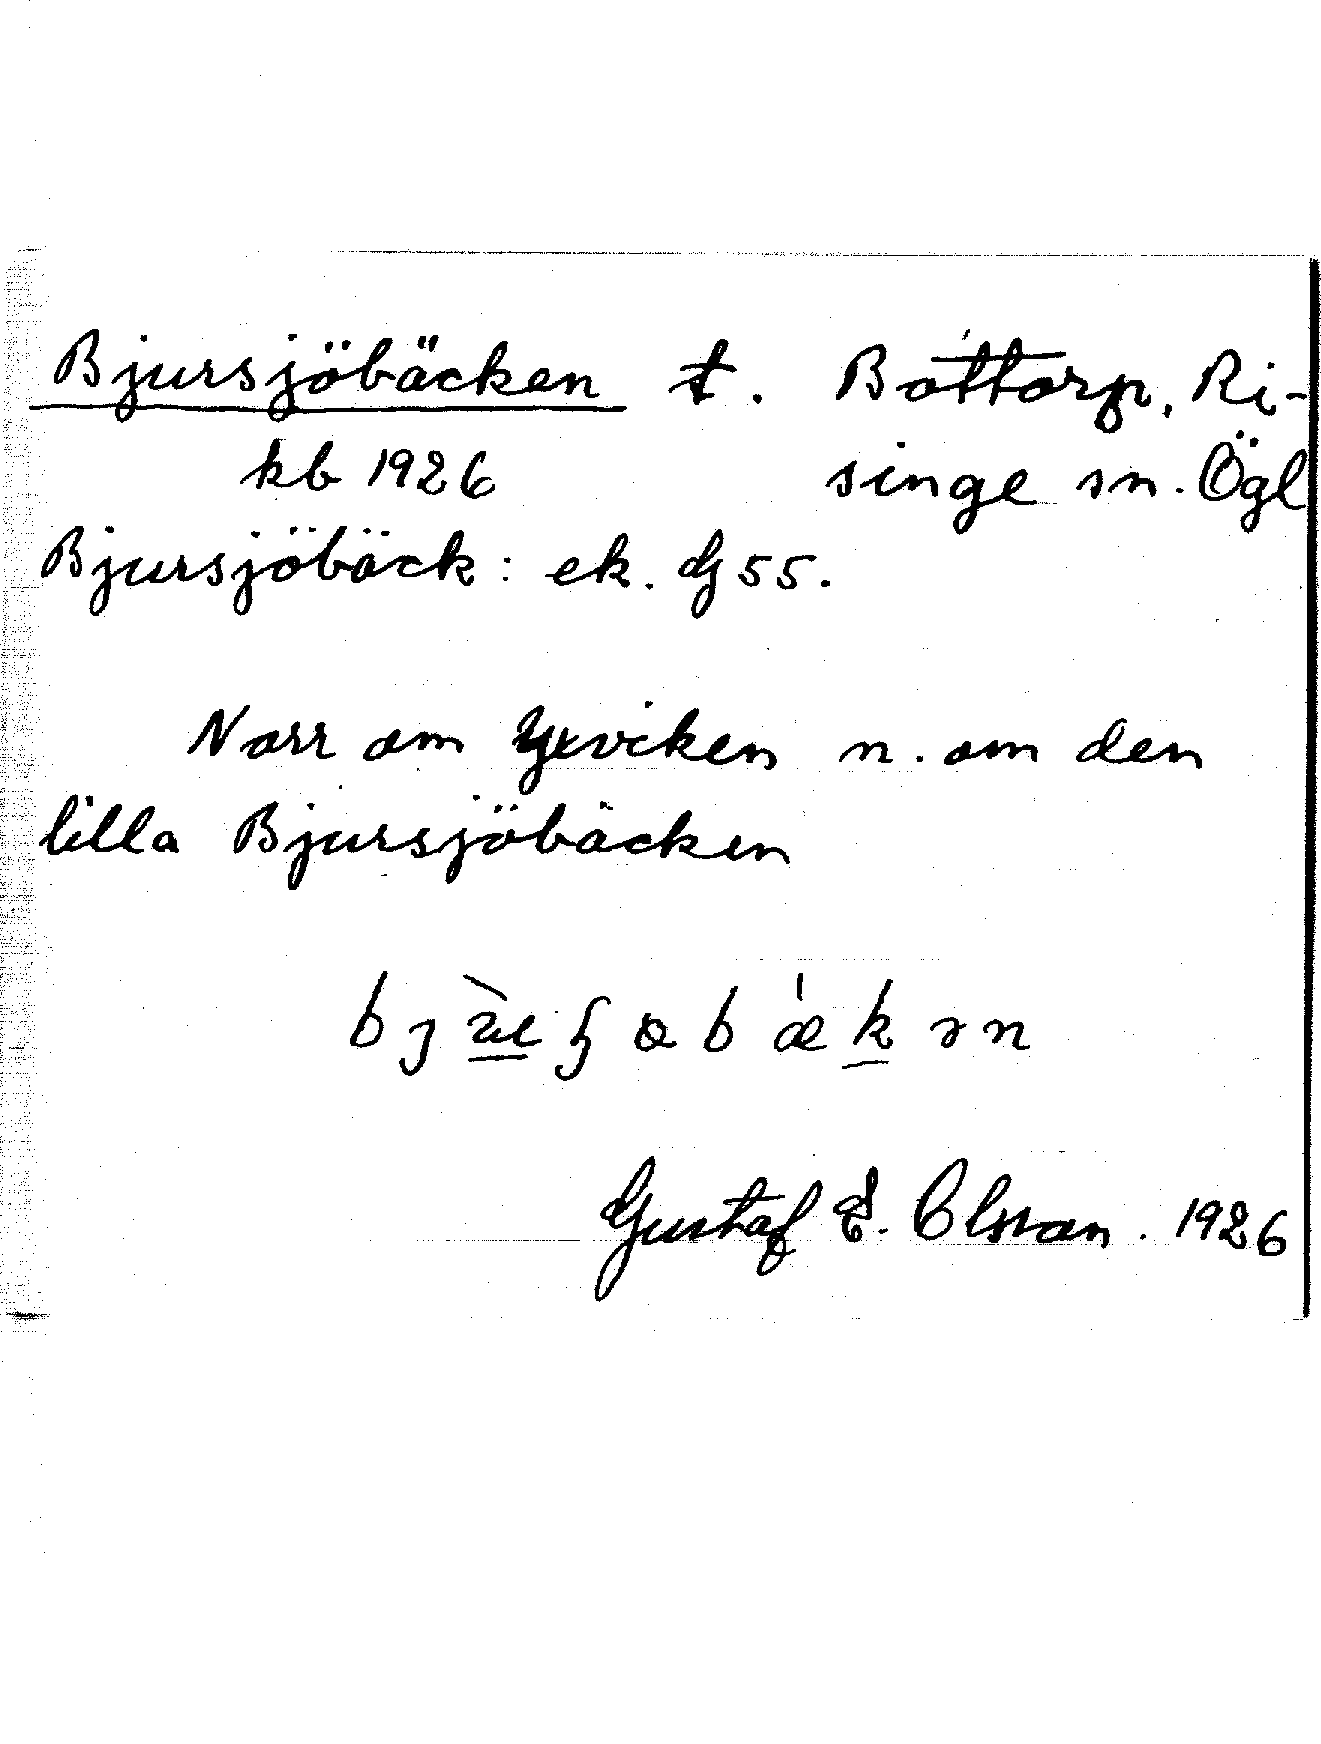 Bjursjöbäcken t. Bottorp, Ri-
kb 1926 singe sn. Ögl
Bjursjöbäck: ek. G 55.
Norr om Yxviken n. om den
lilla Bjursjöbäcken
Gustaf E. Olsson. 1926